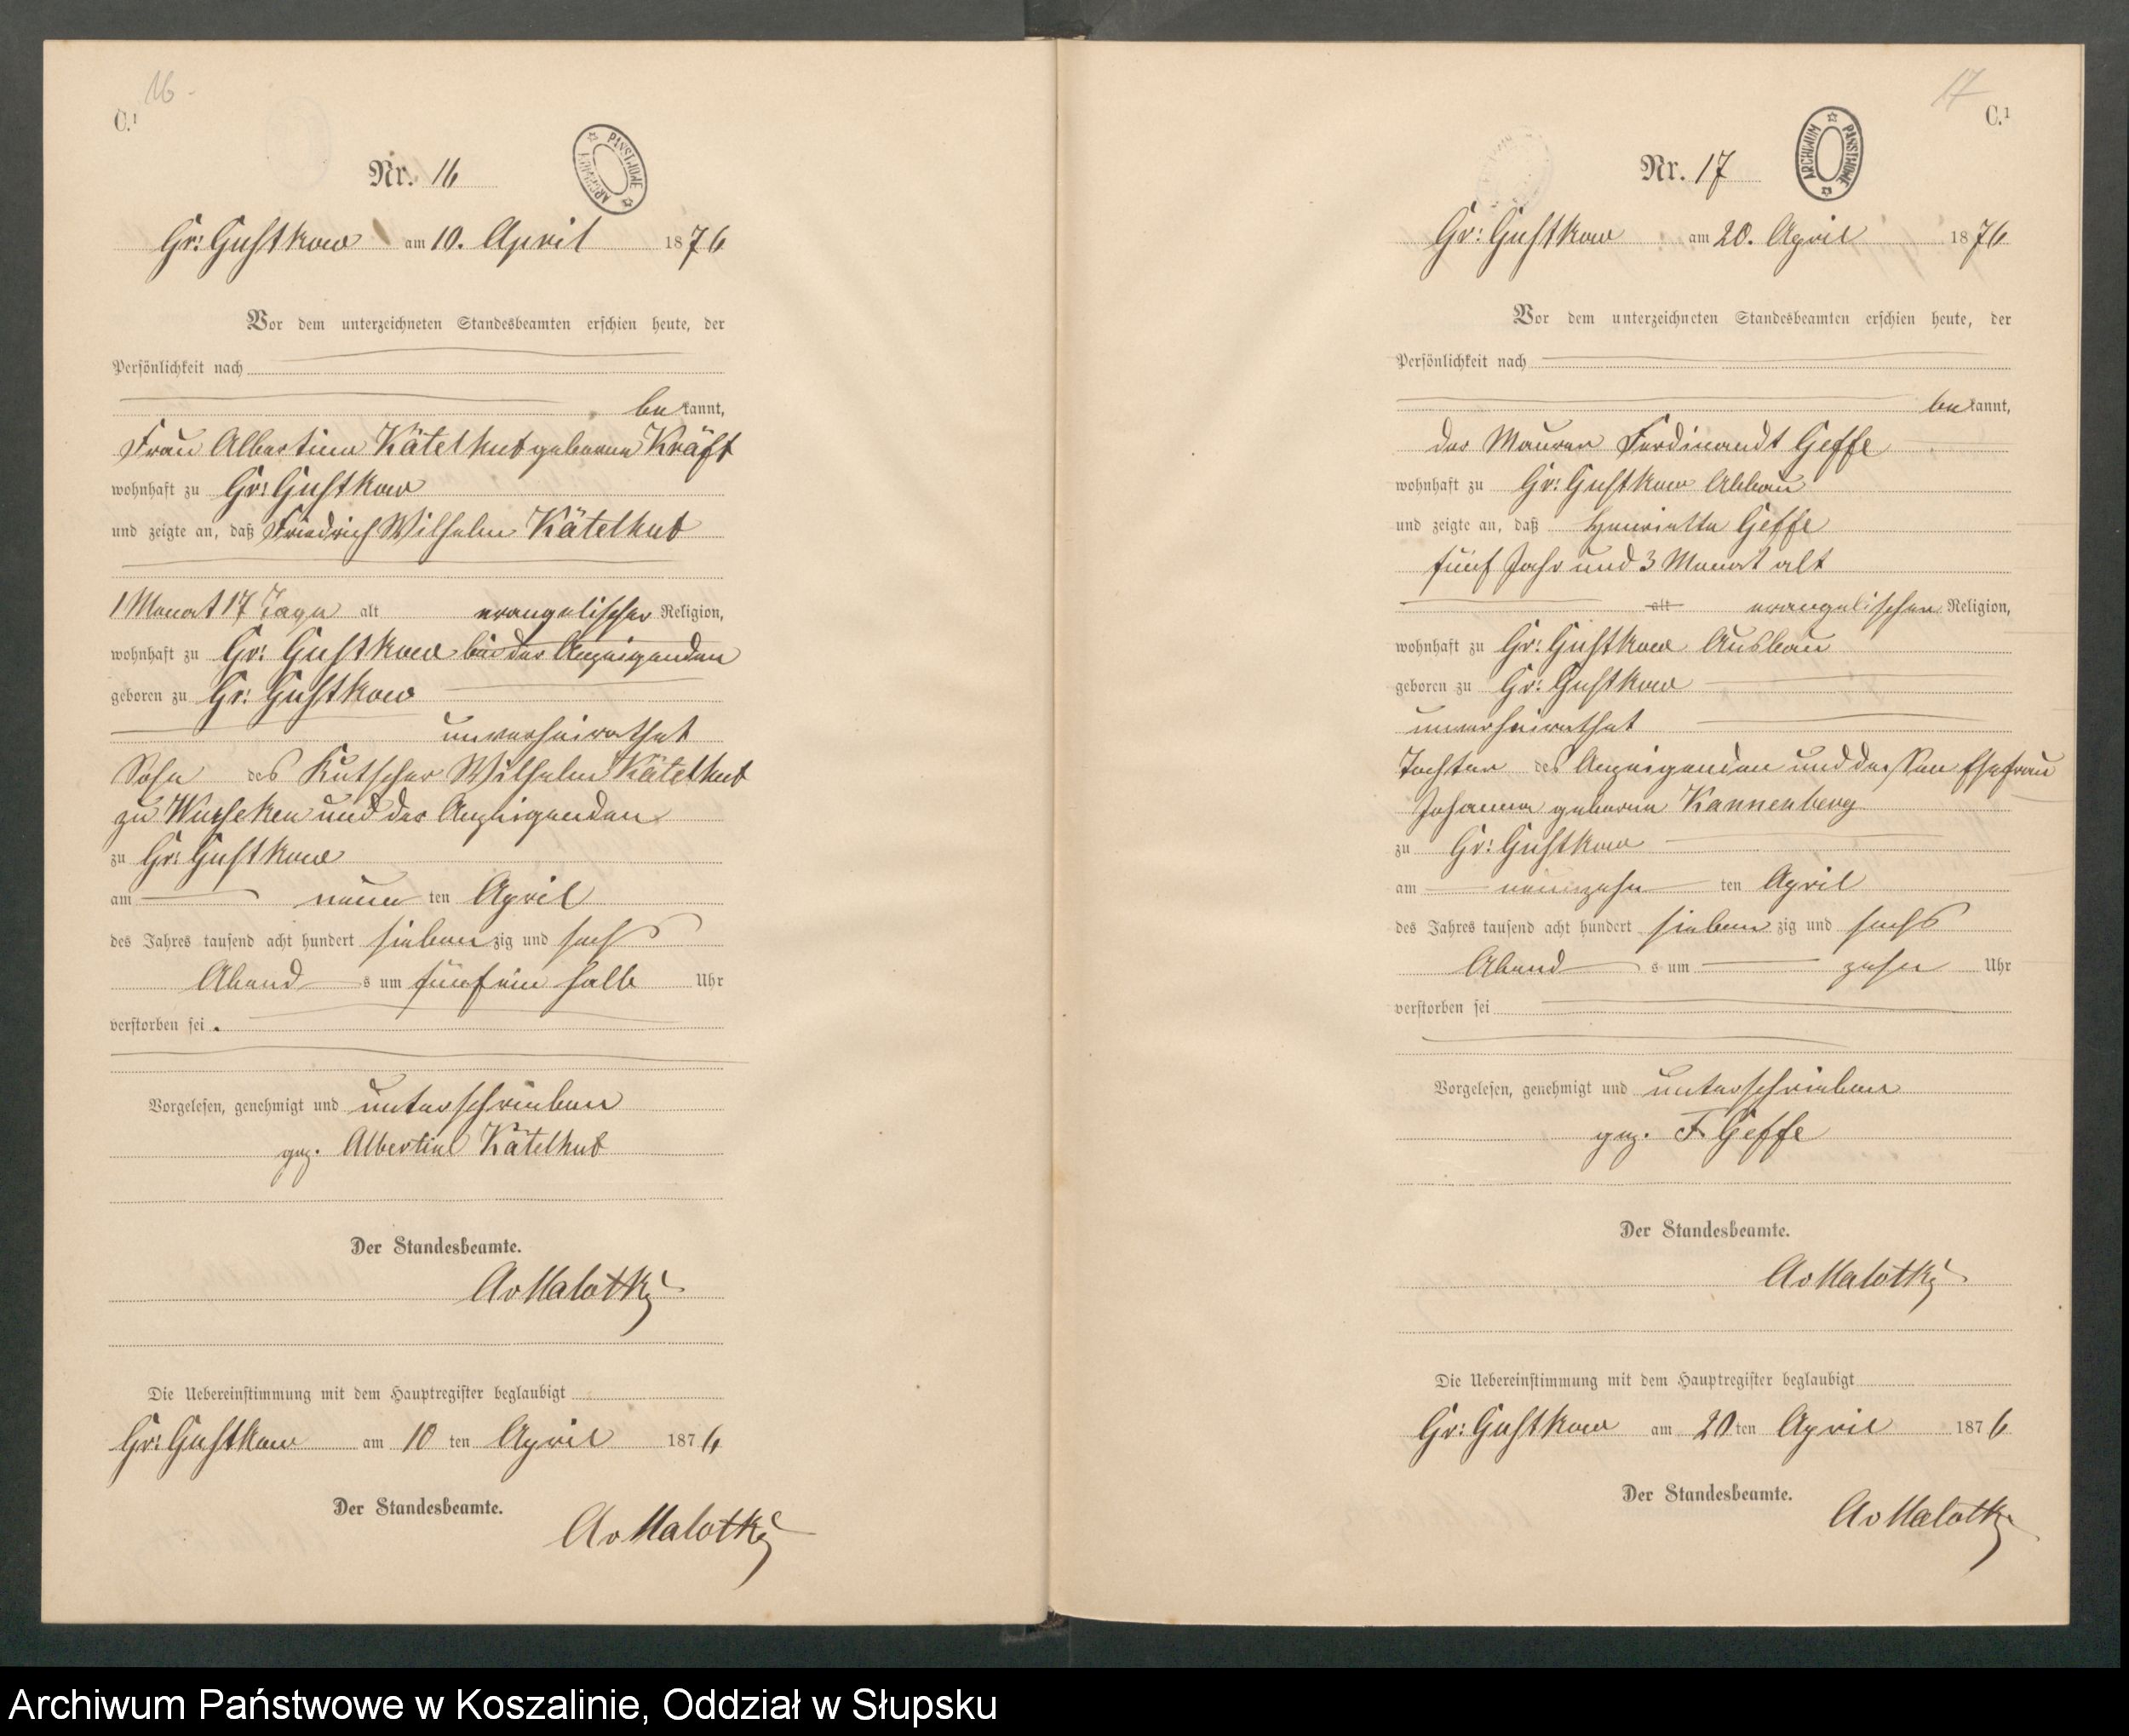 16
C.¹
ARCHIWUM PAŃSTWOWE
Nr. 16
Gr: Gustkow am 10. April 1876
Vor dem unterzeichneten Standesbeamten erschien heute, der
Persönlichkeit nach
bekannt,
Frau Albertine Kätelhut geborne Kräft
wohnhaft zu Gr: Gustkow
und zeigte an, daß Friedrich Wilhelm Kätelhut
1 Monat 17 Tage alt evangelischer Religion,
wohnhaft zu Gr: Gustkow bei der Anzeigenden
geboren zu Gr: Gustkow
unverheirathet
Sohn des Kutscher Wilhelm Kätelhut
zu und der Anzeigenden
zu Gr: Gustkow
am neun ten April
des Jahres tausend acht hundert siebenzig und sechs
Abends um fünf ein halb Uhr
verstorben sei.
Vorgelesen, genehmigt und unterschrieben
gez. Albertine Kätelhut
Der Standesbeamte.
AvMalotky
Die Uebereinstimmung mit dem Hauptregister beglaubigt
Gr: Gustkow am 10 ten April 1876
Der Standesbeamte.
AvMalotky
17
C.¹
ARCHIWUM PAŃSTWOWE
Nr. 17
Gr: Gustkow am 20. April 1876
Vor dem unterzeichneten Standesbeamten erschien heute, der
Persönlichkeit nach
bekannt,
der Maurer Ferdinandt Geffe
wohnhaft zu Gr: Gustkow Abbau
und zeigte an, daß Henriette Geffe
fünf Jahr und 3 Monat alt
alt evangelischen Religion,
wohnhaft zu Gr: Gustkow Ausbau
geboren zu Gr: Gustkow
unverheirathet
Tochter des Anzeigenden und dessen Ehefrau
Johanna geborne Kannenberg
zu Gr: Gustkow
am neunzehn ten April
des Jahres tausend acht hundert siebenzig und sechs
Abends um zehn Uhr
verstorben sei
Vorgelesen, genehmigt und unterschrieben
gez. F Geffe
Der Standesbeamte.
AvMalotky
Die Uebereinstimmung mit dem Hauptregister beglaubigt
Gr: Gustkow am 20ten April 1876
Der Standesbeamte.
AvMalotky
Archiwum Państwowe w Koszalinie, Oddział w Słupsku